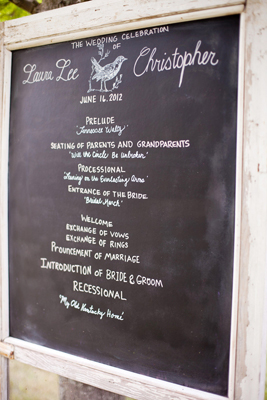 THE WEDDING CELEBRATION
OF
Laura Lee Christopher
JUNE 16, 2012
PRELUDE
"Tennessee Waltz"
SEATING OF PARENTS AND GRANDPARENTS
"Will the Circle Be Unbroken"
PROCESSIONAL
"Leaning on the Everlasting Arms"
ENTRANCE OF THE BRIDE
"Bridal March"
WELCOME
EXCHANGE OF VOWS
EXCHANGE OF RINGS
PROUNCEMENT OF MARRIAGE
INTRODUCTION OF BRIDE & GROOM
RECESSIONAL
"My Old Kentucky Home"